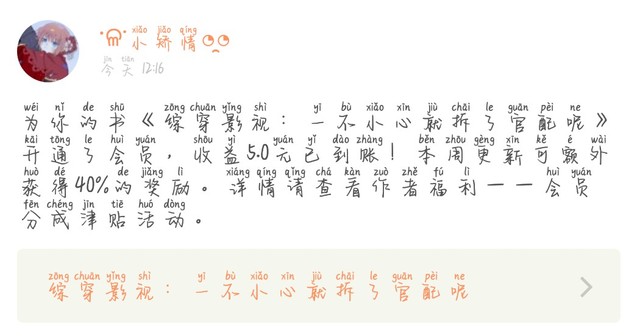 xiǎo jiāo qíng
小矫情
jīn tiān
今天 12:16
wéi nǐ de shū zōng chuān yǐng shì yī bù xiǎo xīn jiù chāi le guān pèi ne
为你的书《综穿影视：一不小心就拆了官配呢》
kāi tōng le huì yuán shōu yì yuán yǐ dào zhàng běn zhōu gèng xīn kě é wài
开通了会员，收益5.0元已到账！本周更新可额外
huò dé de jiǎng lì xiáng qíng qǐng chá kàn zuò zhě fú lì huì yuán
获得40%的奖励。详情请查看作者福利——会员
fēn chéng jīn tiē huó dòng
分成津贴活动。
zōng chuān yǐng shì yī bù xiǎo xīn jiù chāi le guān pèi ne
综穿影视：一不小心就拆了官配呢